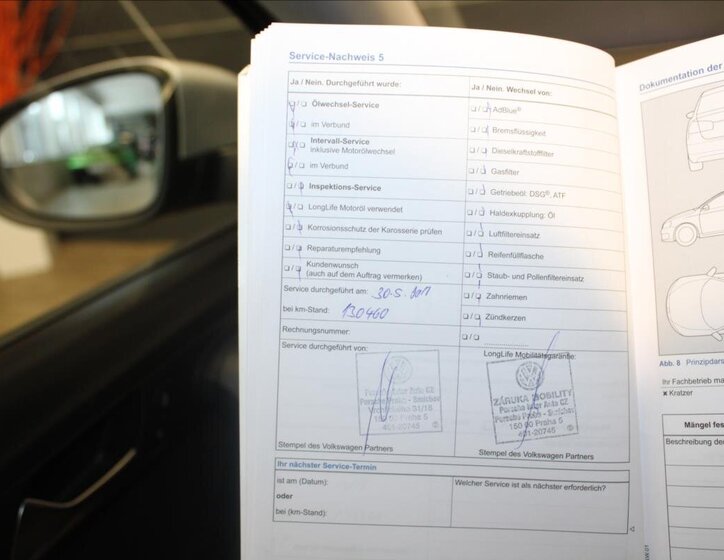 Service-Nachweis 5
Ja / Nein. Durchgeführt wurde:
Ölwechsel-Service
im Verbund
Intervall-Service
inklusive Motorölwechsel
im Verbund
Inspektions-Service
LongLife Motoröl verwendet
Korrosionsschutz der Karosserie prüfen
Reparaturempfehlung
Kundenwunsch
(auch auf dem Auftrag vermerken)
Service durchgeführt am: 30.5. 2017
bei km-Stand: 130460
Rechnungsnummer:
Service durchgeführt von:
Porsche Inter Auto CZ
Porsche Praha - Smíchov
150 00 Praha 5
401-20745
Stempel des Volkswagen Partners
Ja / Nein. Wechsel von:
AdBlue®
Bremsflüssigkeit
Dieselkraftstofffilter
Gasfilter
Getriebeöl: DSG®, ATF
Haldexkupplung: Öl
Luftfiltereinsatz
Reifenfüllflasche
Staub- und Pollenfiltereinsatz
Zahnriemen
Zündkerzen
LongLife Mobilitätsgarantie:
ZÁRUKA MOBILITY
Porsche Inter Auto CZ
Porsche Praha - Smíchov
150 00 Praha 5
401-20745
Stempel des Volkswagen Partners
Ihr nächster Service-Termin
ist am (Datum):
oder
bei (km-Stand):
Welcher Service ist als nächster erforderlich?
Dokumentation der
Abb. 8 Prinzipdars
Ihr Fachbetrieb ma
× Kratzer
Mängel fes
Beschreibung de